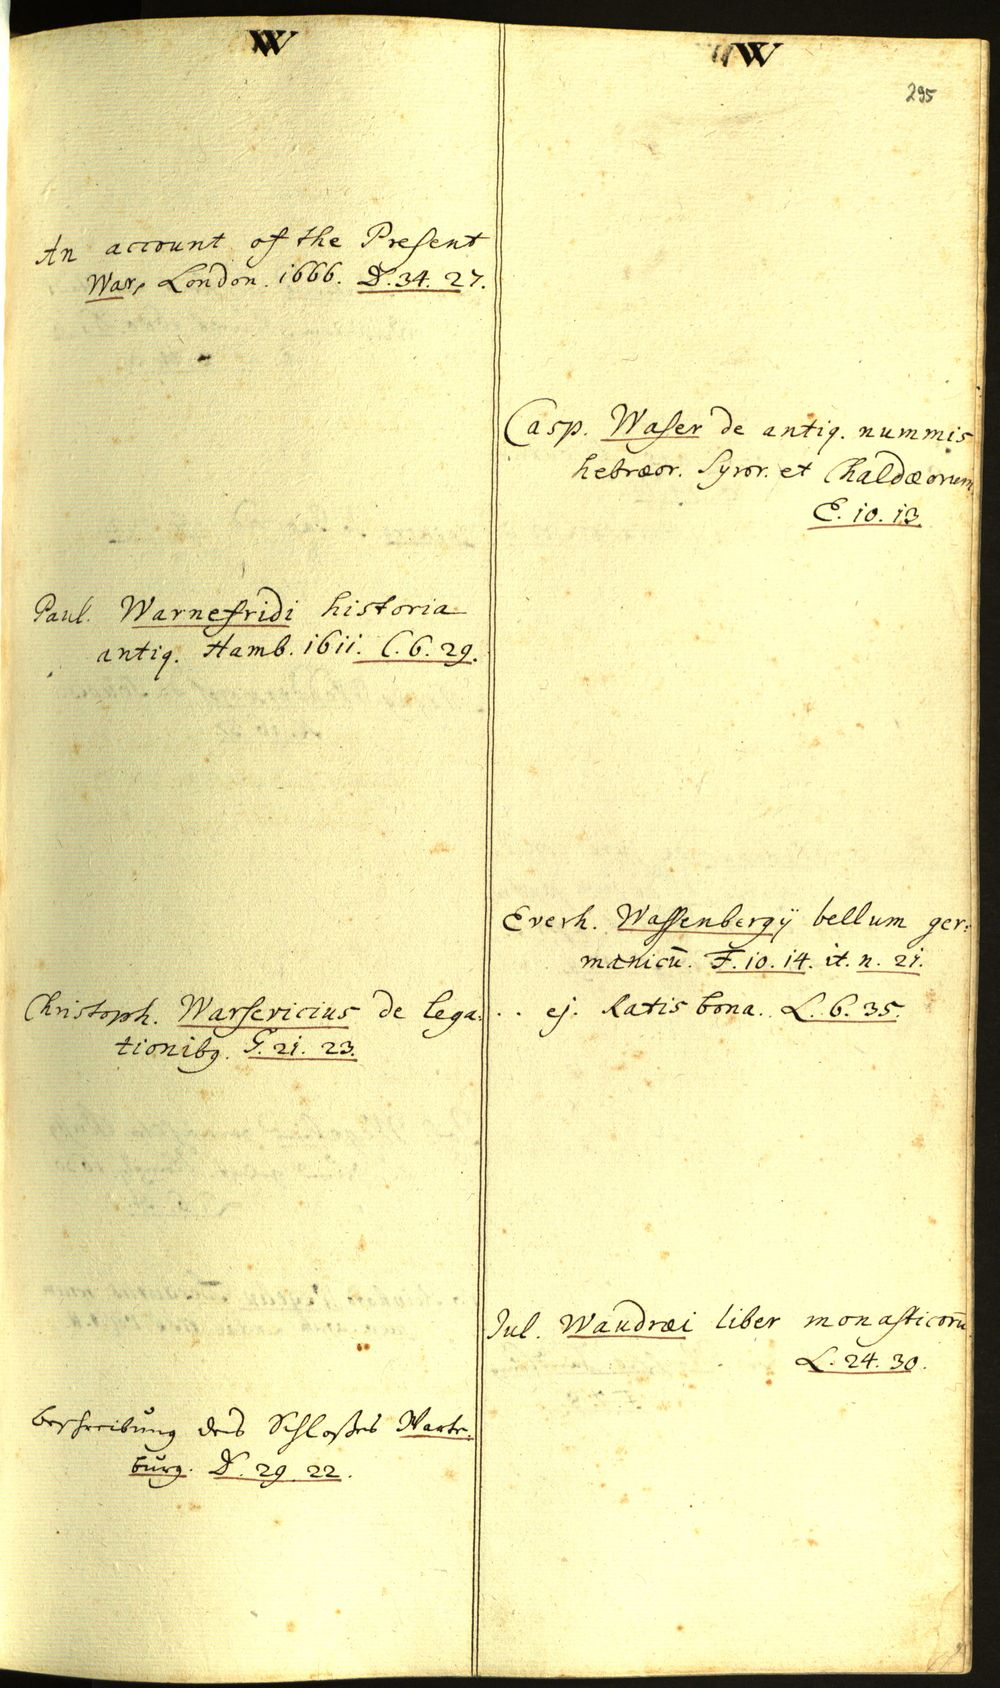 W
An account of the Present
War, London. 1666. D. 34. 27.
Paul. Warnefridi historia
antiq. Hamb. 1611. C. 6. 29.
Christoph. Warsericius de lega:
tionibq. G. 21. 23.
Beschreibung des Schloßes Warte:
burg. D. 29. 22.
W
295
Casp. Waser de antiq. nummis
hebræor. Syror. et Chaldæorum
E. 10. 13.
Everh. Wassenbergÿ bellum ger:
manicū. F. 10. 14. it. n. 21.
. . ej. Ratisbona. L. 6. 35.
Jul. Waudræi liber monasticorū
L. 24. 30.